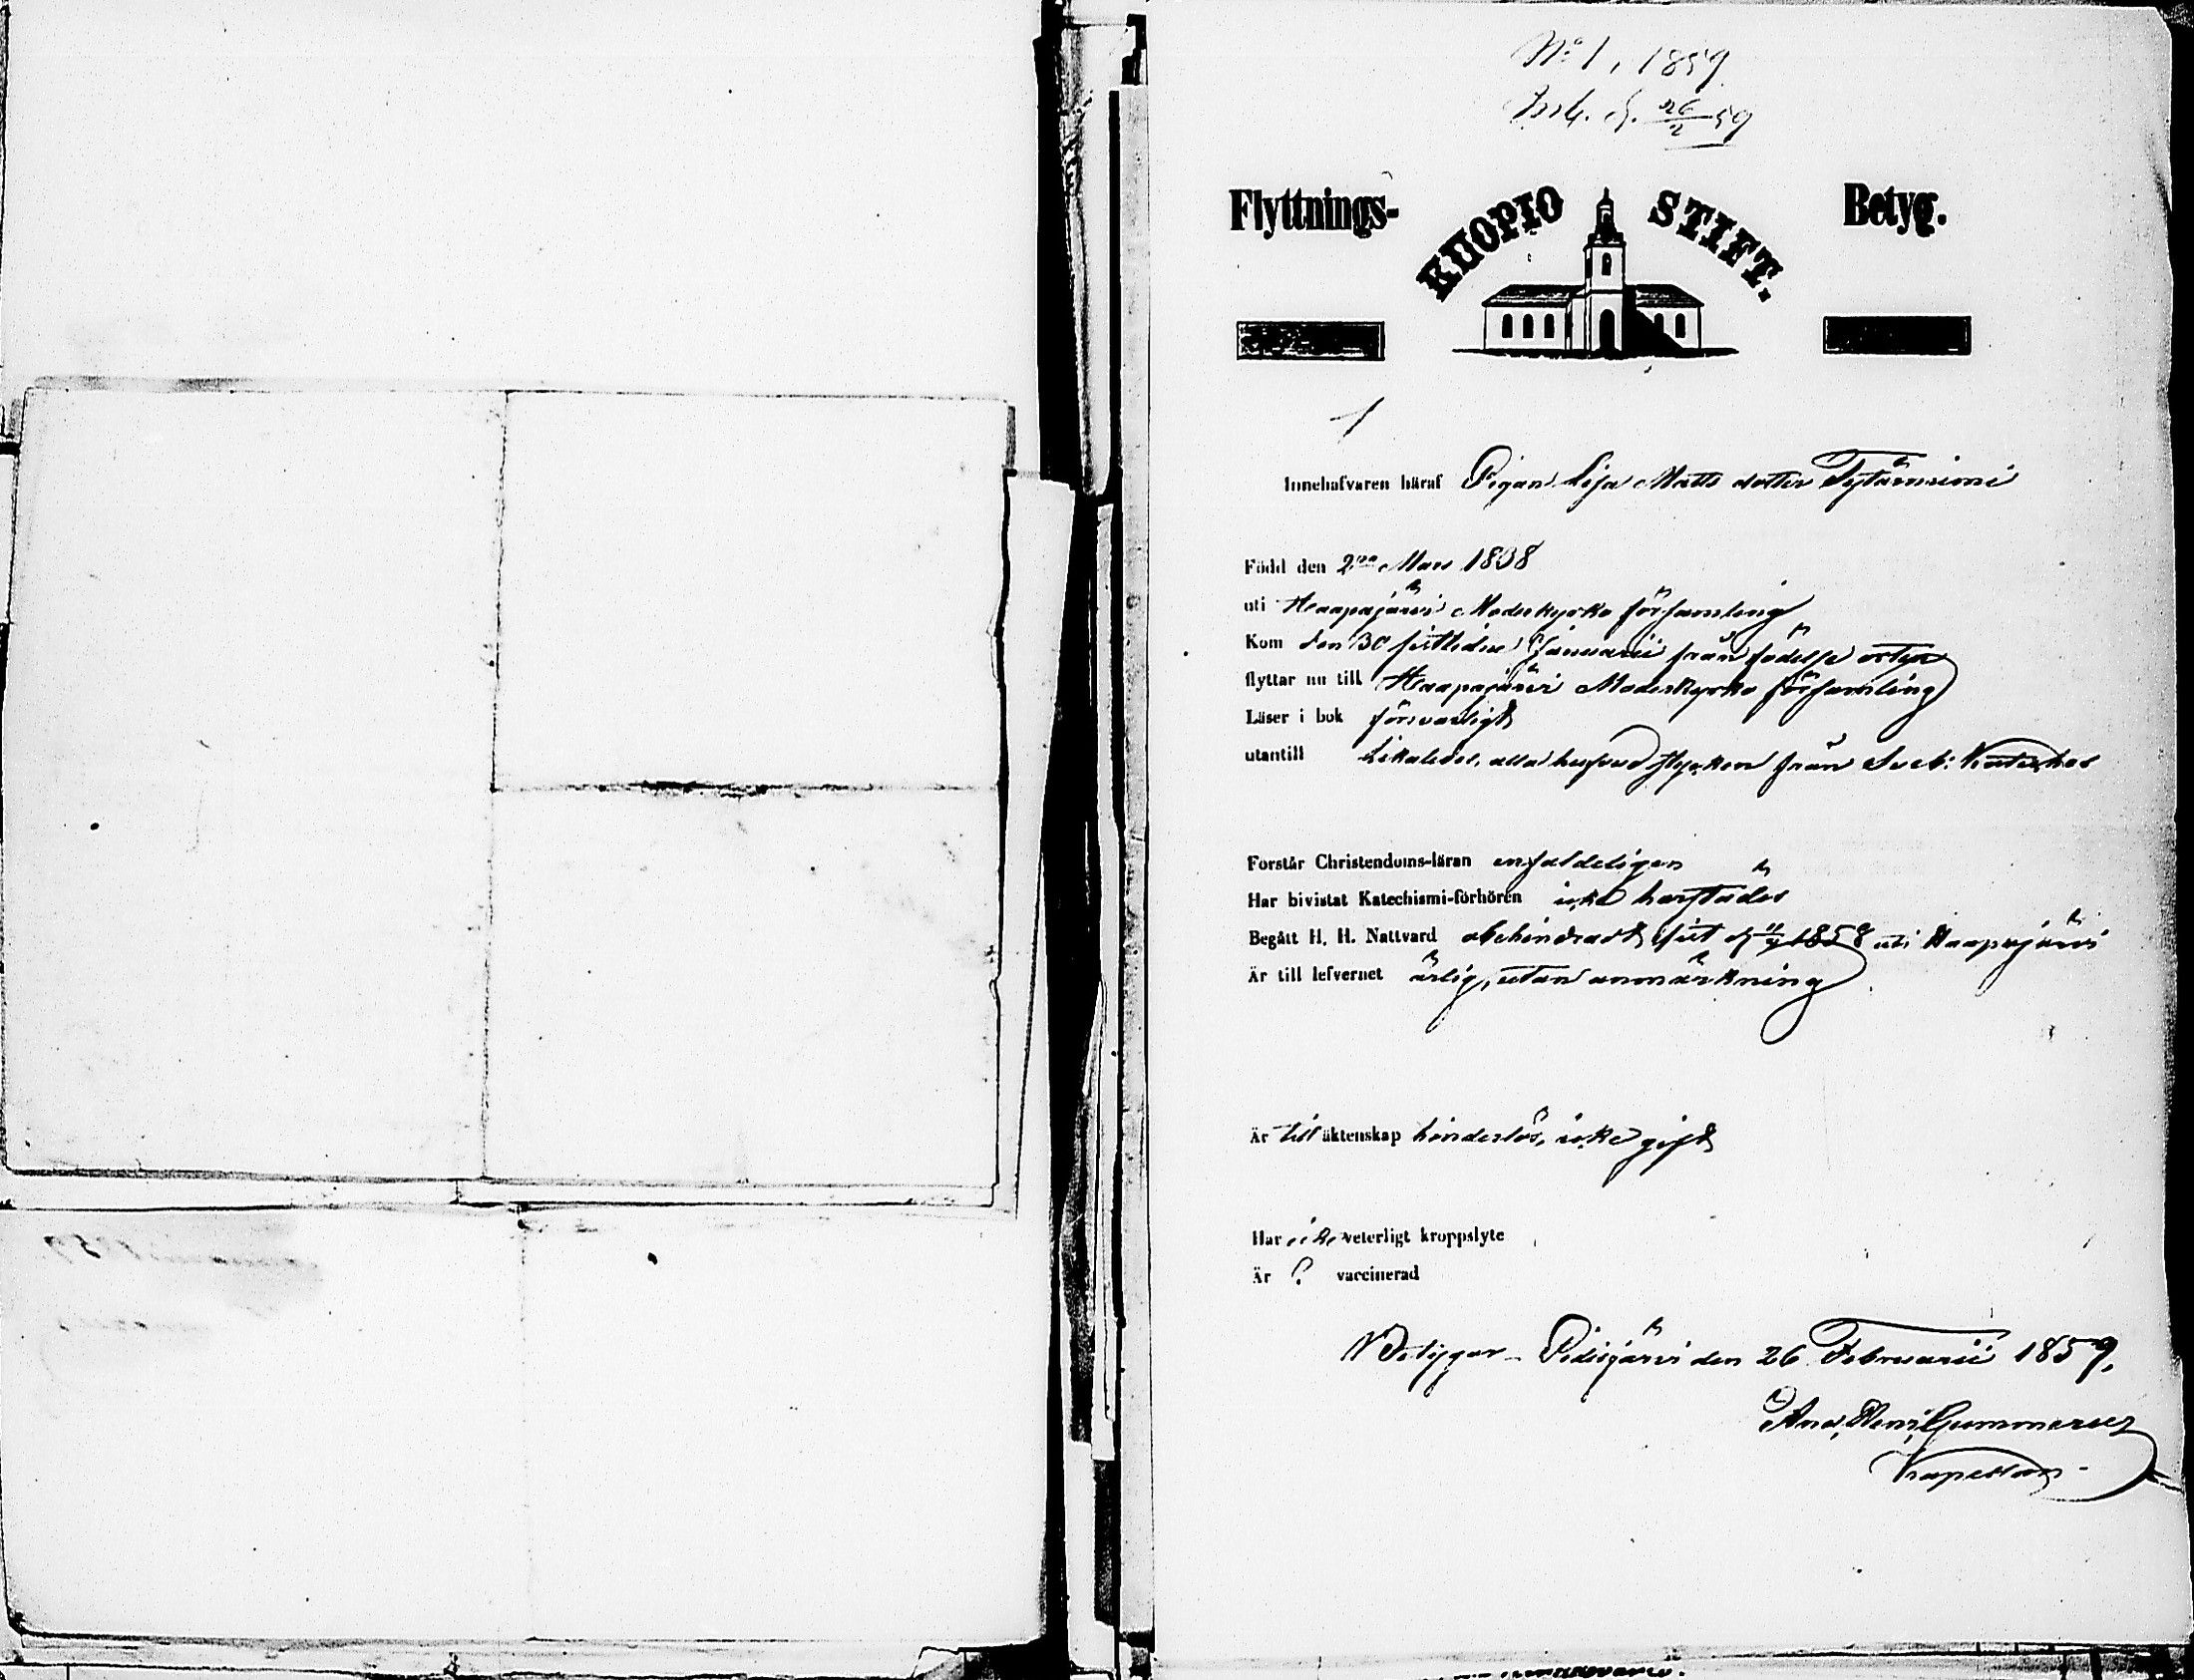 No 1, 1859
Ink. d. 26/2 59
Flyttnings- KUOPIO STIFT. Betyg.
1
Innehafvaren häraf Pigan Lisa Matts dotter Tytärniemi
Född den 2dra Mars 1838
uti Haapajärvi Moderkyrko församling
Kom den 30 sistledne Januarii från födelse orten
flyttar nu till Haapajärvi Moderkyrko församling
Läser i bok försvarligt
utantill likaledes, alla hufvudstycken från Sveb:
Forstår Christendoms-läran enfaldeligen
Har bivistat Katechismi-förhören icke härstädes
Begått H. H. Nattvard obehindradt, sist d. 1858 uti Haapajärvi
Är till lefvernet ärlig, utan anmärkning
Är till äktenskap hinderlös, icke gift
Har icke veterligt kroppslyte
Är ? vaccinerad
Betygar Pidisjärvi den 26 Februarii 1859.
And. Henr. Gummerus
Kapellan